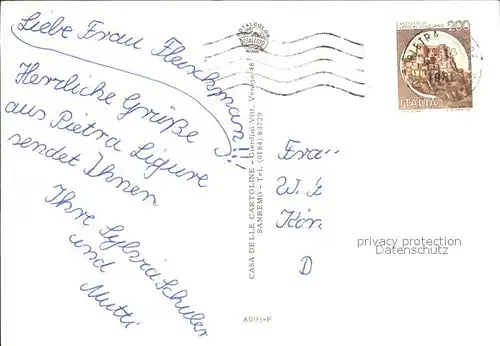 Liebe Frau Fleischmann!!!
Herzliche Grüße
aus Pietra Ligure
sendet Ihnen
Ihre Sylvia Schuler
und
Mutti
CASA DELLE CARTOLINE - Giardini Vitt. Veneto 48
SANREMO - Tel. (0184) 83729
8093-F
200
ITALIA
PIETRA
Frau
W.
Kör
D
privacy protection
Datenschutz